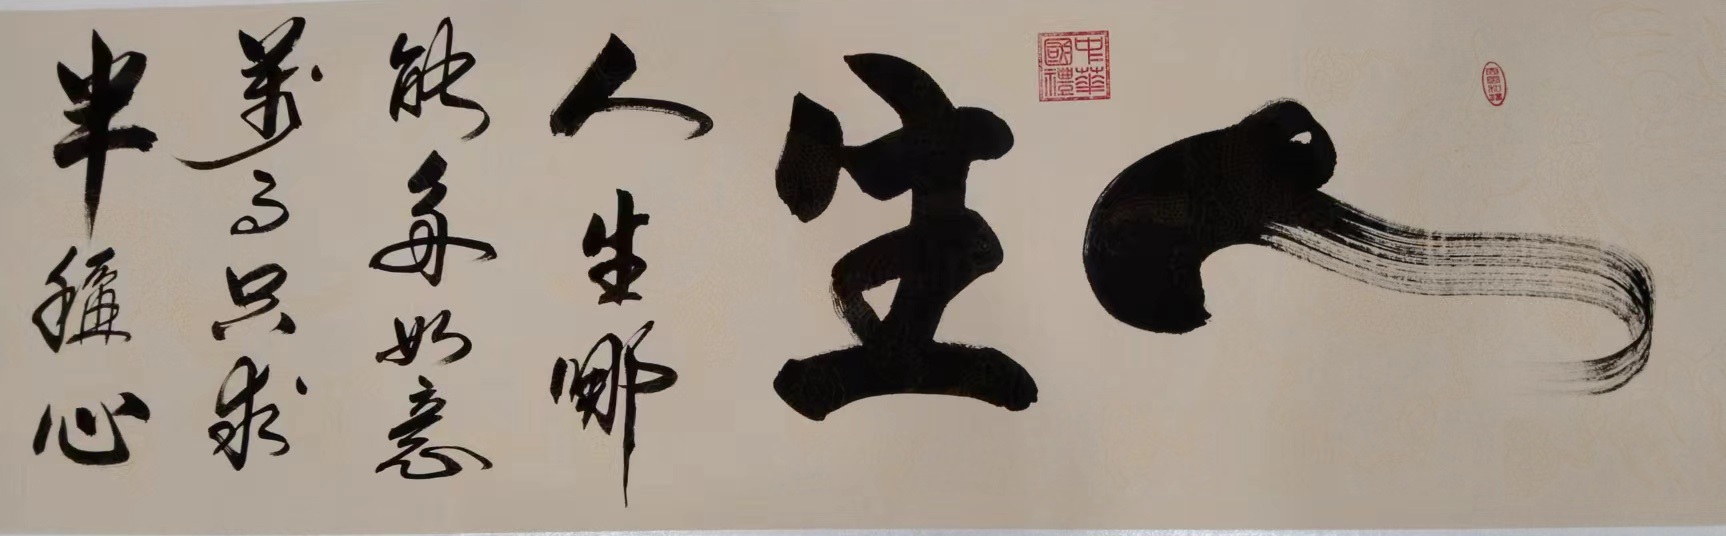 人生
中華國禮
人生哪
能多如意
萬事只求
半稱心